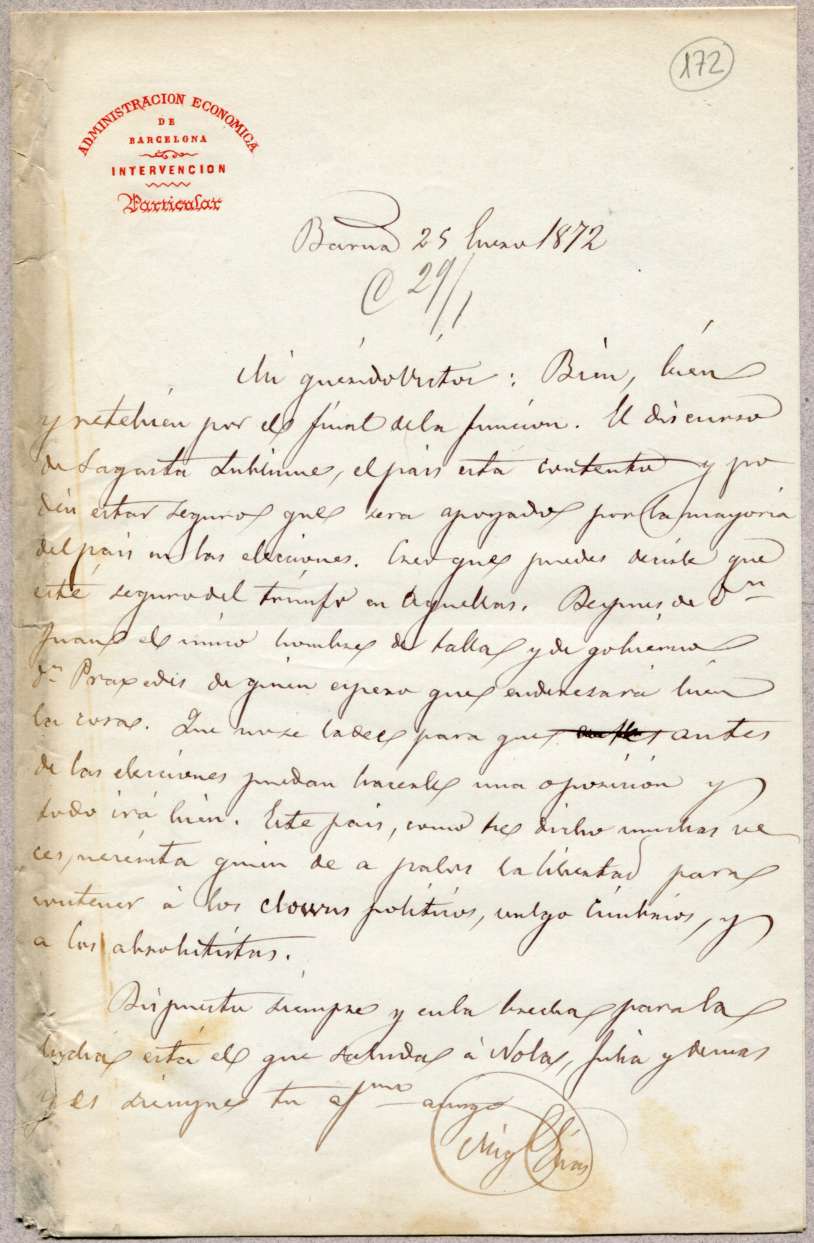 172
ADMINISTRACION ECONOMICA
DE
BARCELONA
INTERVENCION
Particular
Barna 25 Enero 1872
C 29/1
Mi querido Victor: Bien, bien
y retebien por el final de la funcion. El discurso
de Sagasta sublime, el pais está contento y po
dén estar seguros que sera apoyado por la mayoria
del pais en las elecciones. Creo que puedes decirle que
esté seguro del triunfo en aquellas. Despues de Dn
Juan el unico hombre de talla y de gobierno
Dn Praxedis de quien espero que enderezará bien
la cosa. Que no se ladee para que antes
de las elecciones puedan hacerle una oposicion y
todo irá bien. Este pais, como he dicho muchas ve
ces, necesita quien de a palos la libertad para
contener á los clowns politicos, vulgo cimbrios, y
a los absolutistas.
Dispuesto siempre y en la brecha para la
lucha está el que saluda á Nolas, Julia y demas
y es siempre tu afmo amigo
Mig Elias